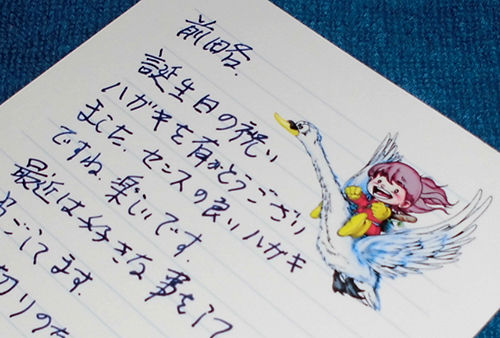 前略.
誕生日の祝い
ハガキを有がとうござい
ました. センスの良いハガキ
ですね、楽しいです.
最近は好きな事をして
ごしてます.
切りの